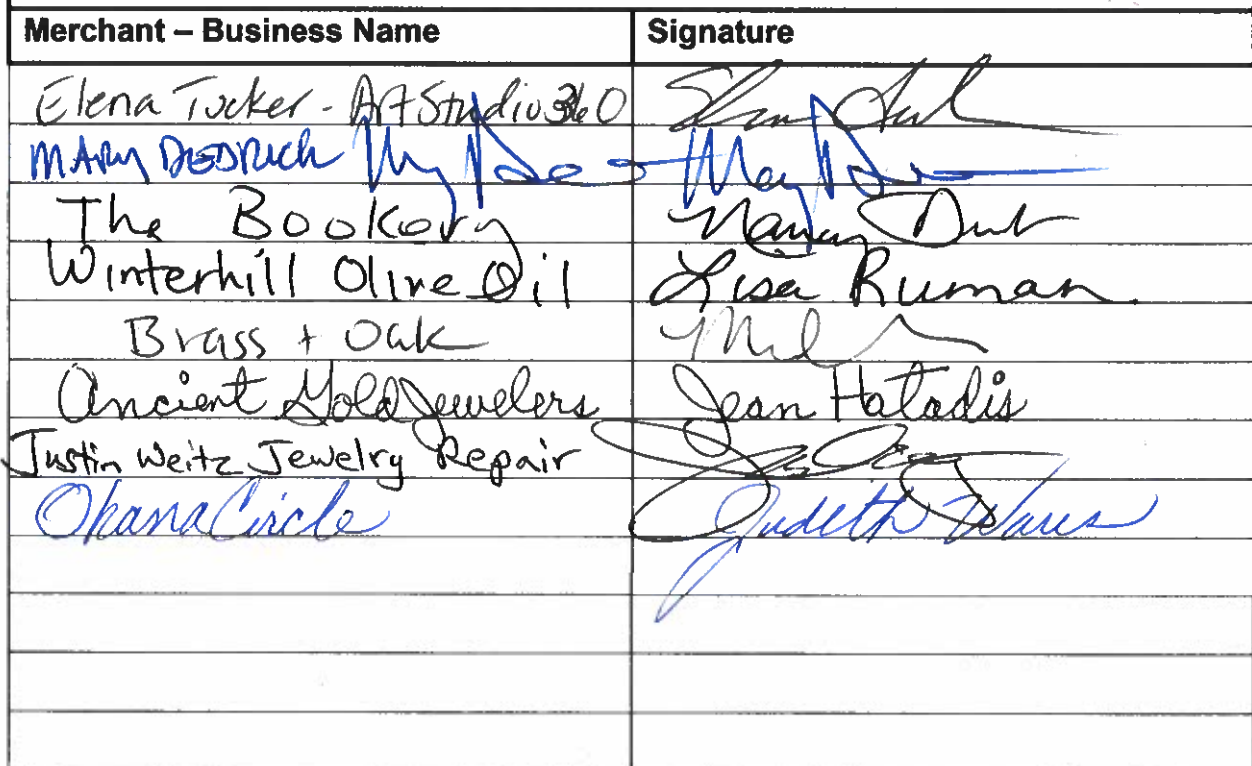 Merchant – Business Name Signature
Elena Tucker - Art Studio 360
MARY DEDRICH
The Bookery Nancy
Winterhill Olive Oil Lisa Ruman
Brass + Oak
Ancient Gold Jewelers Jean Hatadis
Justin Weitz Jewelry Repair
Ohana Circle Judith